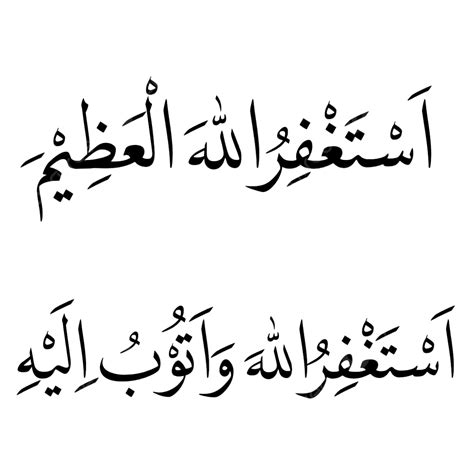 اَسْتَغْفِرُ اللهَ الْعَظِيْمَ
اَسْتَغْفِرُ اللهَ وَاَتُوْبُ اِلَيْهِ